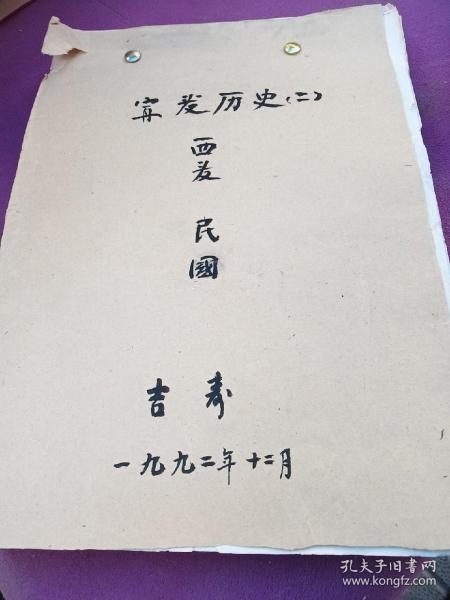 宁夏历史(二)
西夏
民國
吉寿
一九九二年十二月
孔夫子旧书网
www.kongfz.com